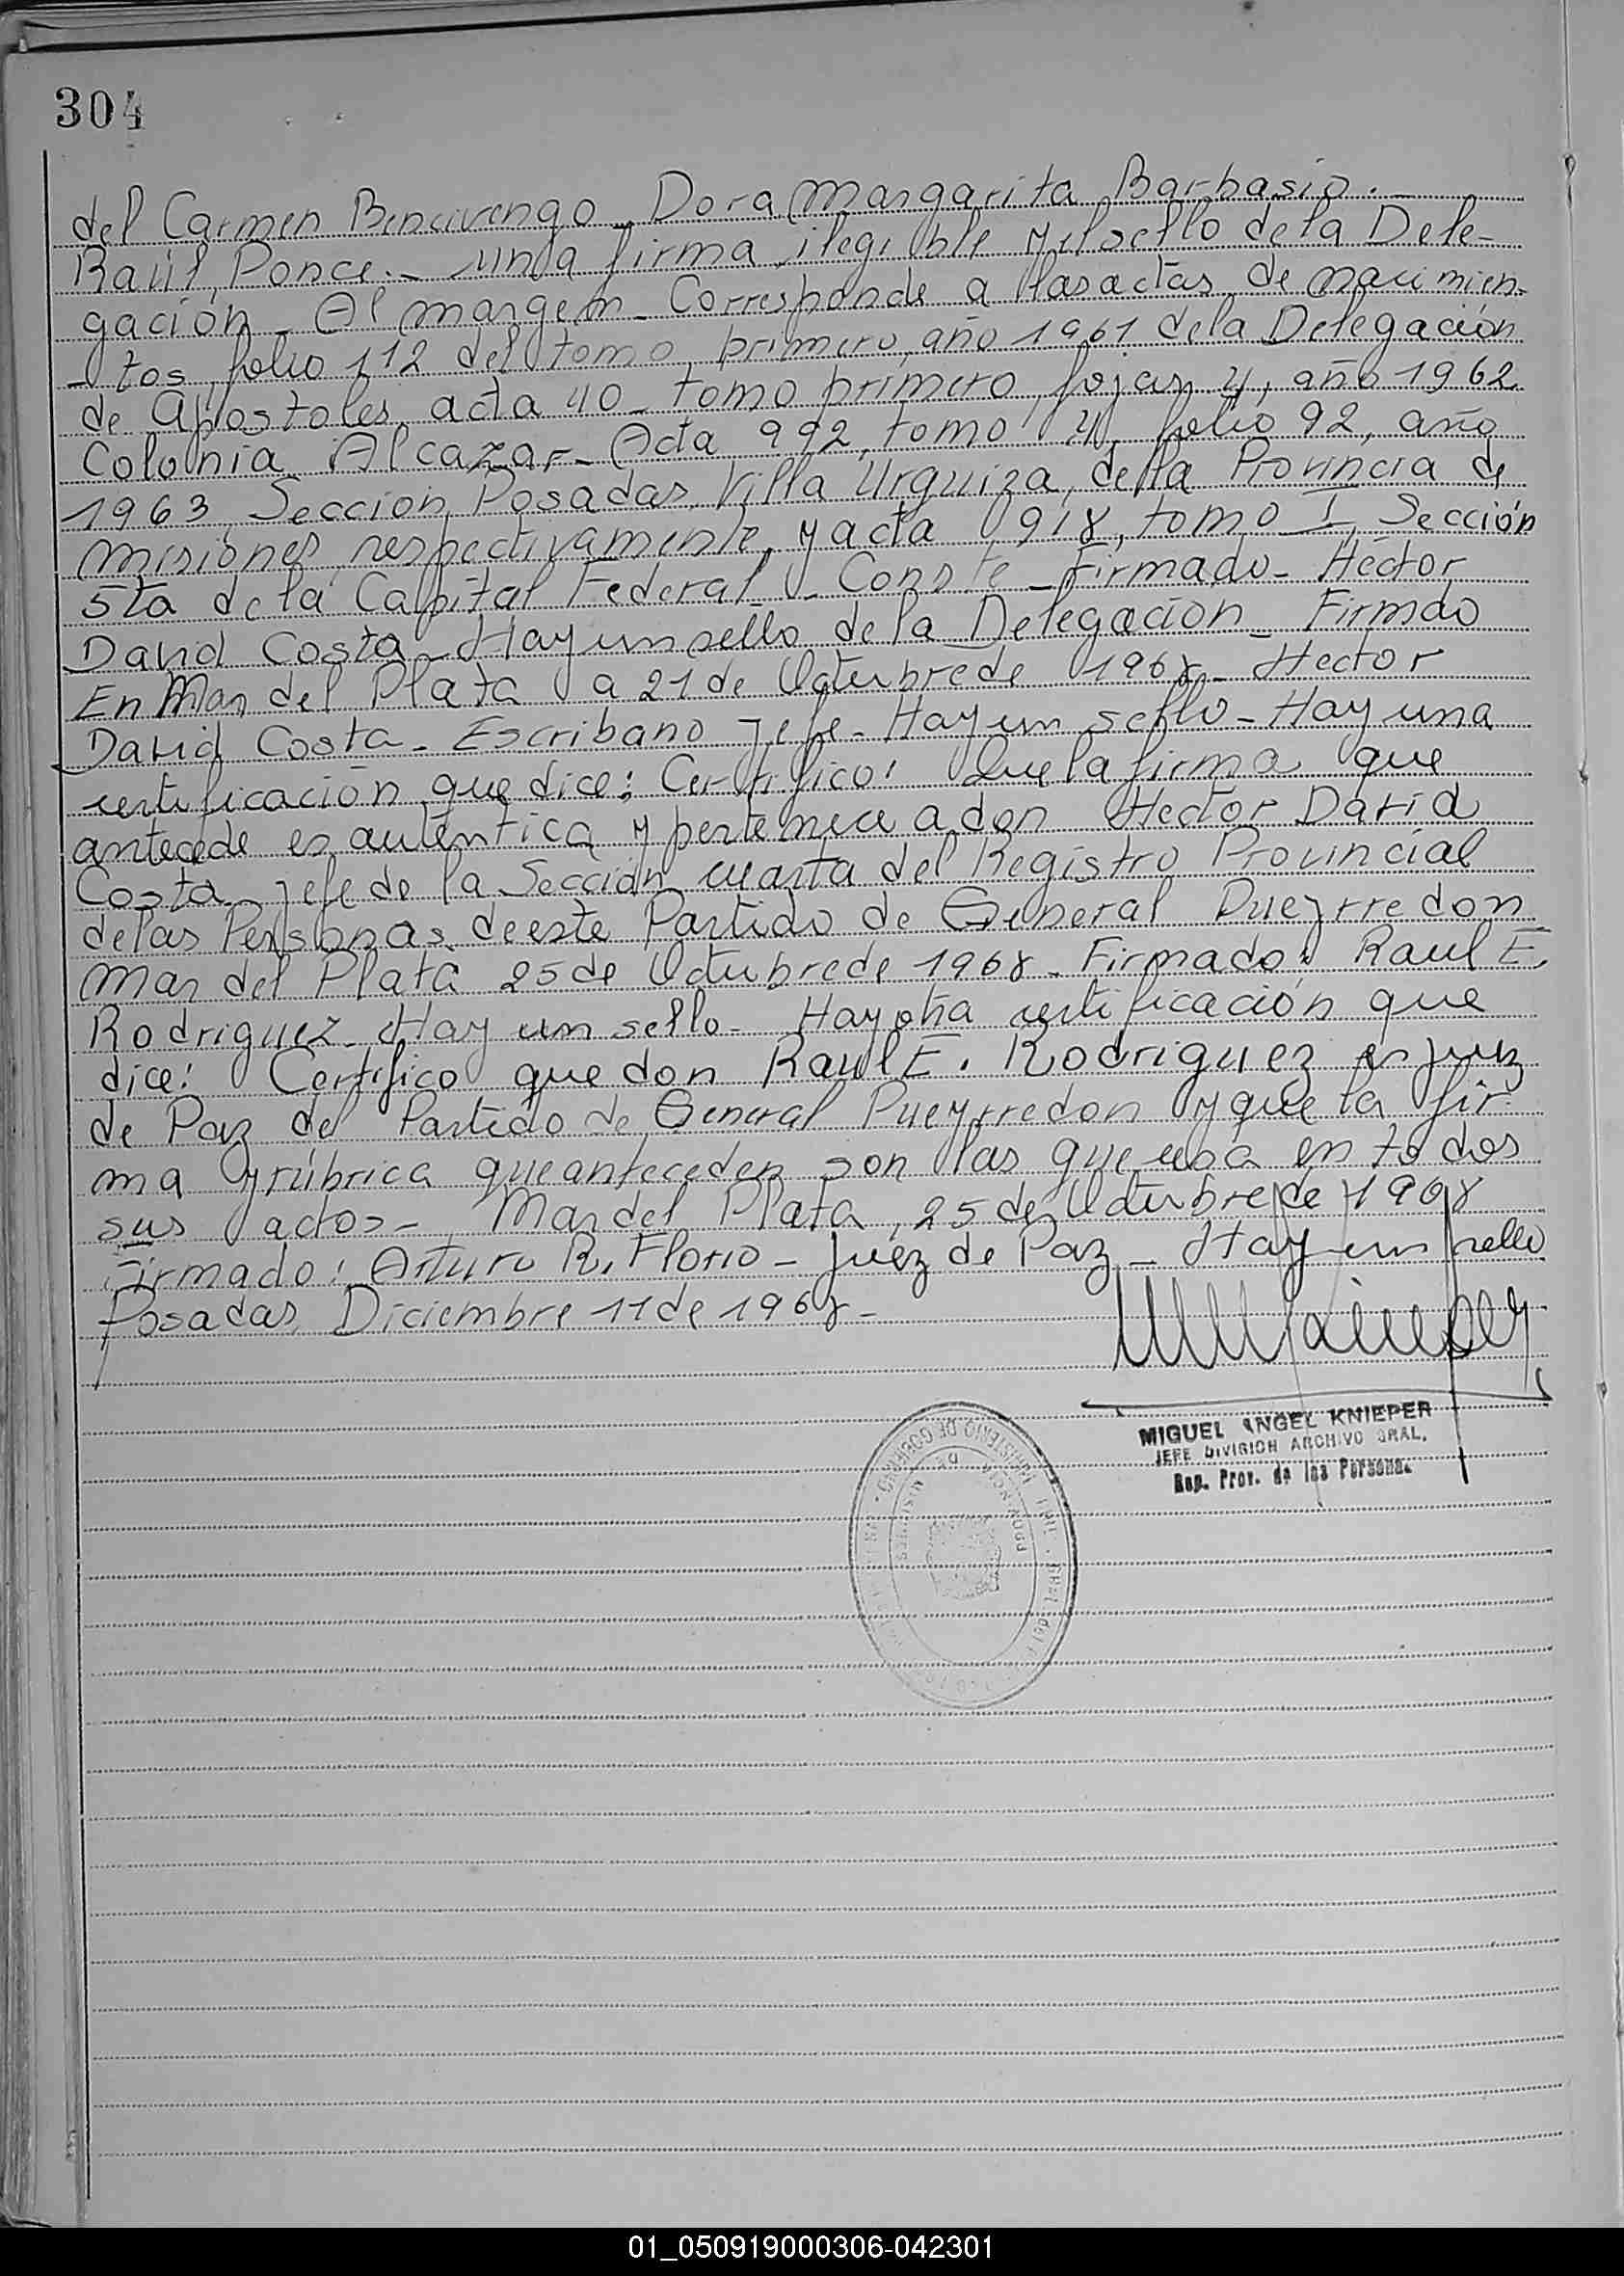 304
del Carmen Bencivengo - Dora Margarita Barbasio.-
Raúl, Ponce.- una firma ilegible y el sello de la Dele-
gación - Al margen - Corresponde a las actas de nacimien-
- tos, folio 112 del tomo primero, año 1961 de la Delegación
de Apostoles, acta 40 - tomo primero, fojas 4, año 1962
Colonia Alcazar - Acta 992, tomo 4, folio 92, año
1963, Seccion Posadas, Villa Urquiza, de la Provincia de
Misiones, respectivamente, y acta 918, tomo I, Sección
5ta de la Capital Federal - Conste - Firmado - Héctor
David Costa - Hay un sello de la Delegación - Firmdo
En Mar del Plata a 21 de Octubre de 1968 - Hector
David Costa - Escribano Jefe - Hay un sello - Hay una
certificación que dice: Certifico: Que la firma que
antecede es auténtica y pertenece a don Hector David
Costa, jefe de la Sección cuarta del Registro Provincial
de las Personas, de este Partido de General Pueyrredon
Mar del Plata 25 de Octubre de 1968 - Firmado: Raul E.
Rodriguez - Hay un sello - Hay otra certificación que
dice: Certifico que don Raul E. Rodriguez es juez
de Paz del Partido de General Pueyrredon y que la fir-
ma y rúbrica que anteceden son las que usa en todos
sus actos - Mar del Plata, 25 de Octubre de 1968
Firmado: Arturo R. Florio - Juez de Paz - Hay un sello
Posadas, Diciembre 11 de 1968 -
MIGUEL ANGEL KNIEPER
JEFE DIVISION ARCHIVO GRAL.
Reg. Prov. de las Personas.
MINISTERIO DE GOBIERNO
PROVINCIA DE MISIONES
01_050919000306-042301